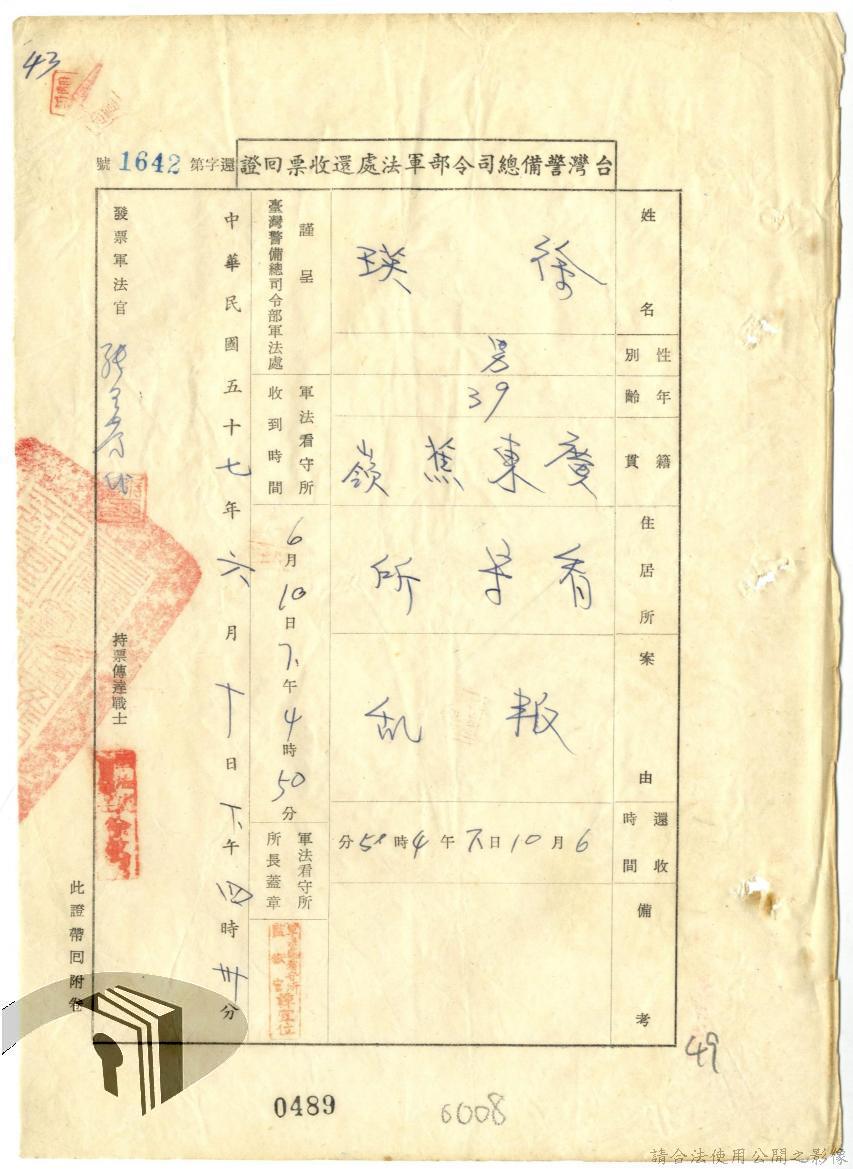 43
台灣警備總司令部軍法處還收票回證
還字第1642號
姓名
徐瑛
性別
男
年齡
39
籍貫
廣東蕉嶺
住居所
看守所
案由
叛乱
還收時間
6月10日下午4時50分
備考
謹呈
臺灣警備總司令部軍法處
軍法看守所
收到時間
6月10日下午4時50分
軍法看守所
所長蓋章
中華民國五十七年六月十日下午四時卅分
發票軍法官
持票傳達戰士
此證帶回附卷
49
0489
6008
請合法使用公開之影像